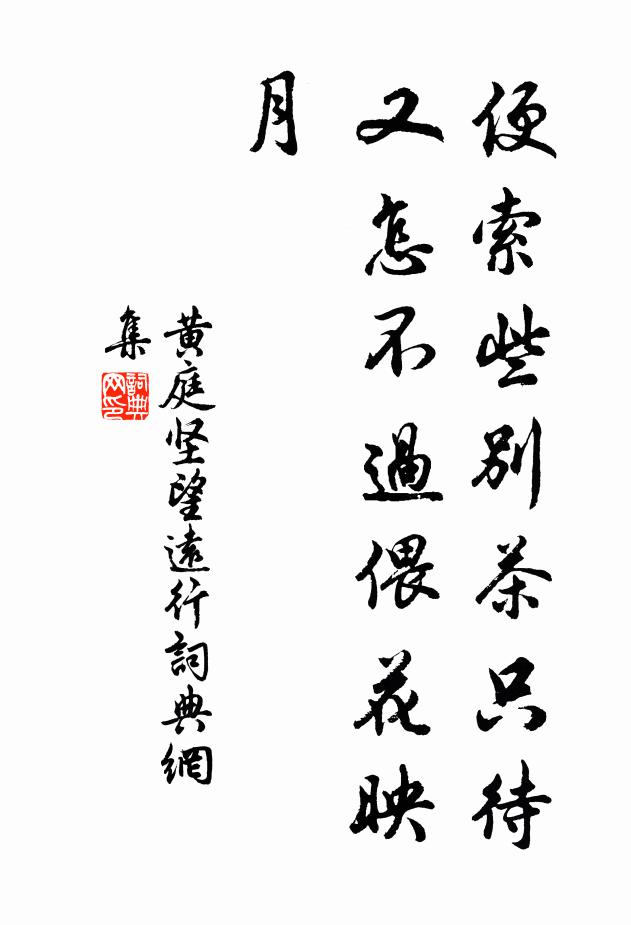 便索些別茶只待
又怎不過偎花映
月
黄庭坚望遠行詞典網
集
詞典
网印